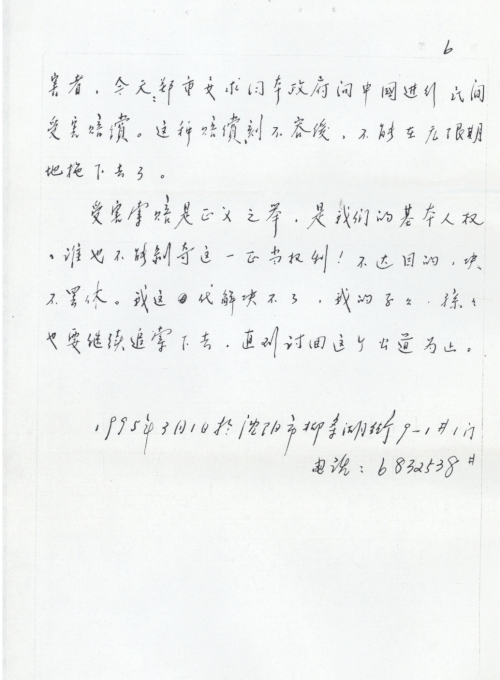 6
害者，今天，郑重要求日本政府向中國进行民间
受害赔償。这种赔償刻不容缓，不能在无限期
地拖下去了。
受害索赔是正义之举，是我们的基本人权
。谁也不能剥夺这一正当权利！不达目的，决
不罢休。我这一代解决不了，我的子々，孫々
也要继续追索下去，直到讨回这个公道为止。
1995年3月1日於沈阳市柳条湖街9-1#1门
电话：6832538#